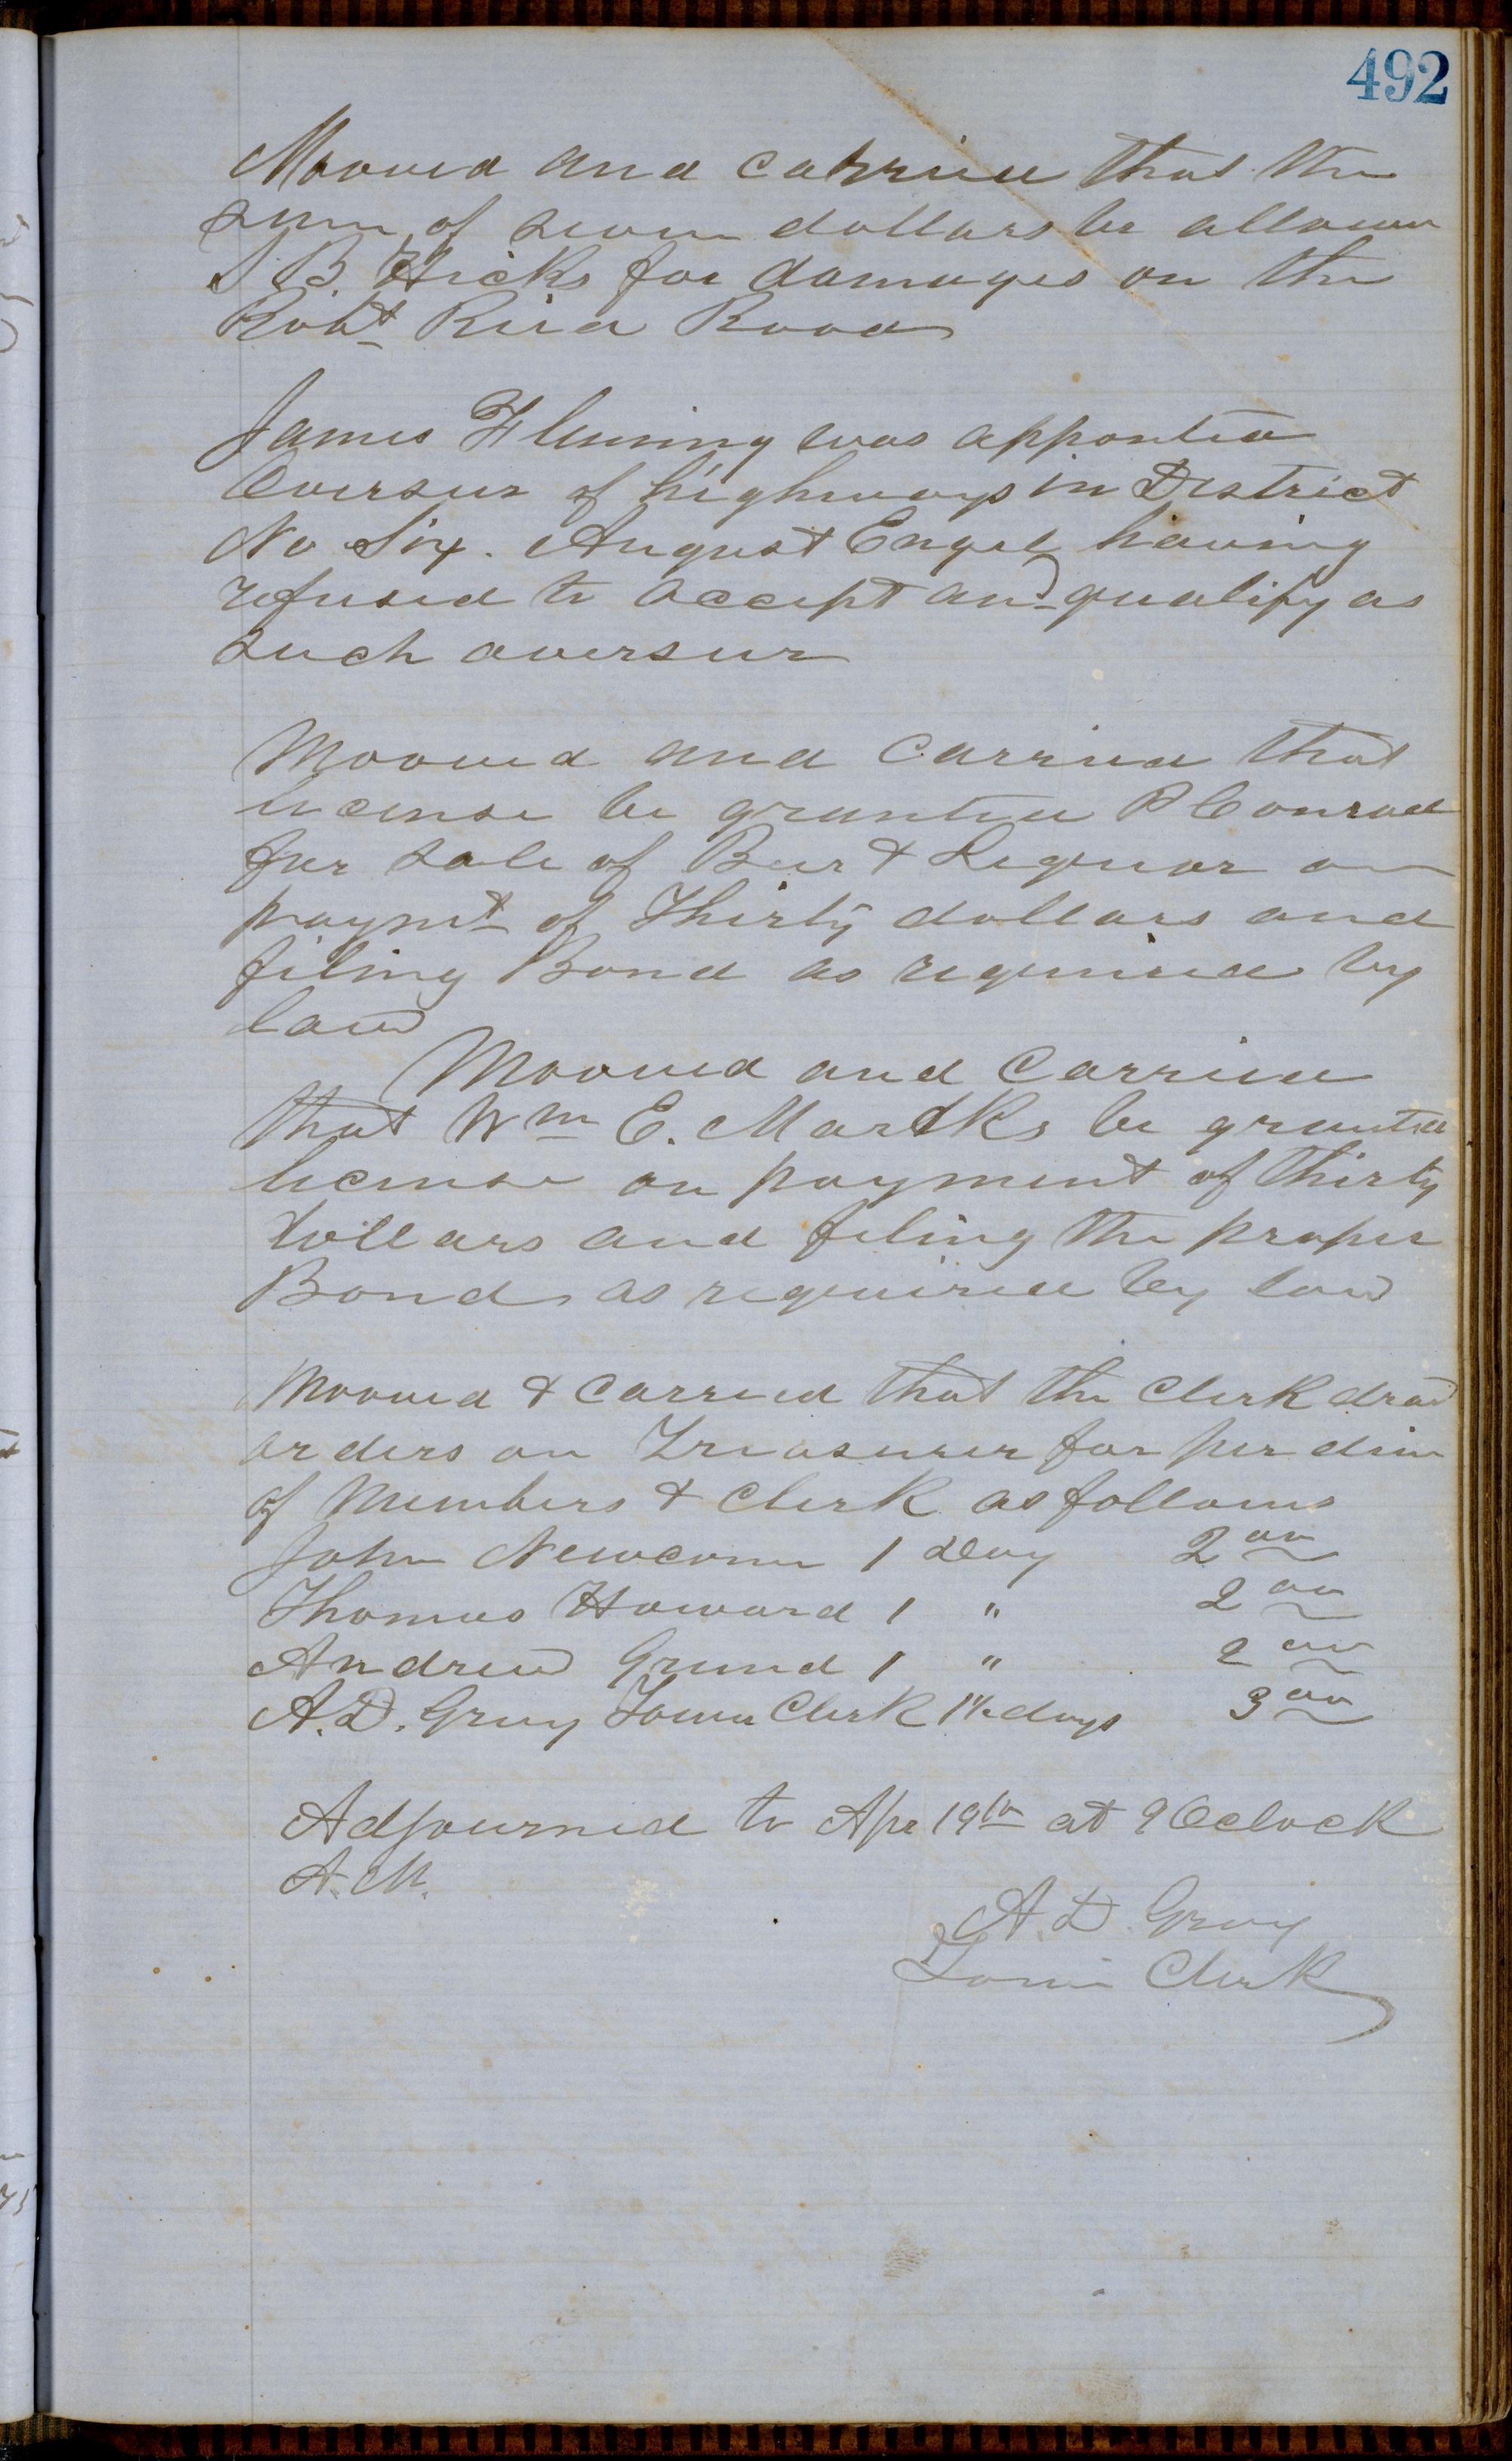 492
Mooved and carried that the
sum of seven dollars be allowed
S. B. Hicks for damages on the
Robt Reid Road
James Fleming was appointed
Overseer of highways in District
No Six. August Engel having
refused to accept and qualify as
such overseer
Mooved and carried that
license be granted P Conrad
for sale of Beer & Liquor on
paymt of Thirty dollars and
filing Bond as required by
law
Mooved and Carried
that Wm E. Marks be granted
license on payment of thirty
dollars and filing the proper
Bond as required by law
Mooved & carried that the Clerk draw
orders on Treasurer for per diem
of Members & Clerk as follows
John Newcomer 1 Day 2 00
Thomas Howard 1 " 2 00
Andrew Grund 1 " 2 00
A. D. Gray Town Clerk 1½ days 3 00
Adjourned to Apr 19th at 9 Oclock
A. M.
A. D. Gray
Town Clerk